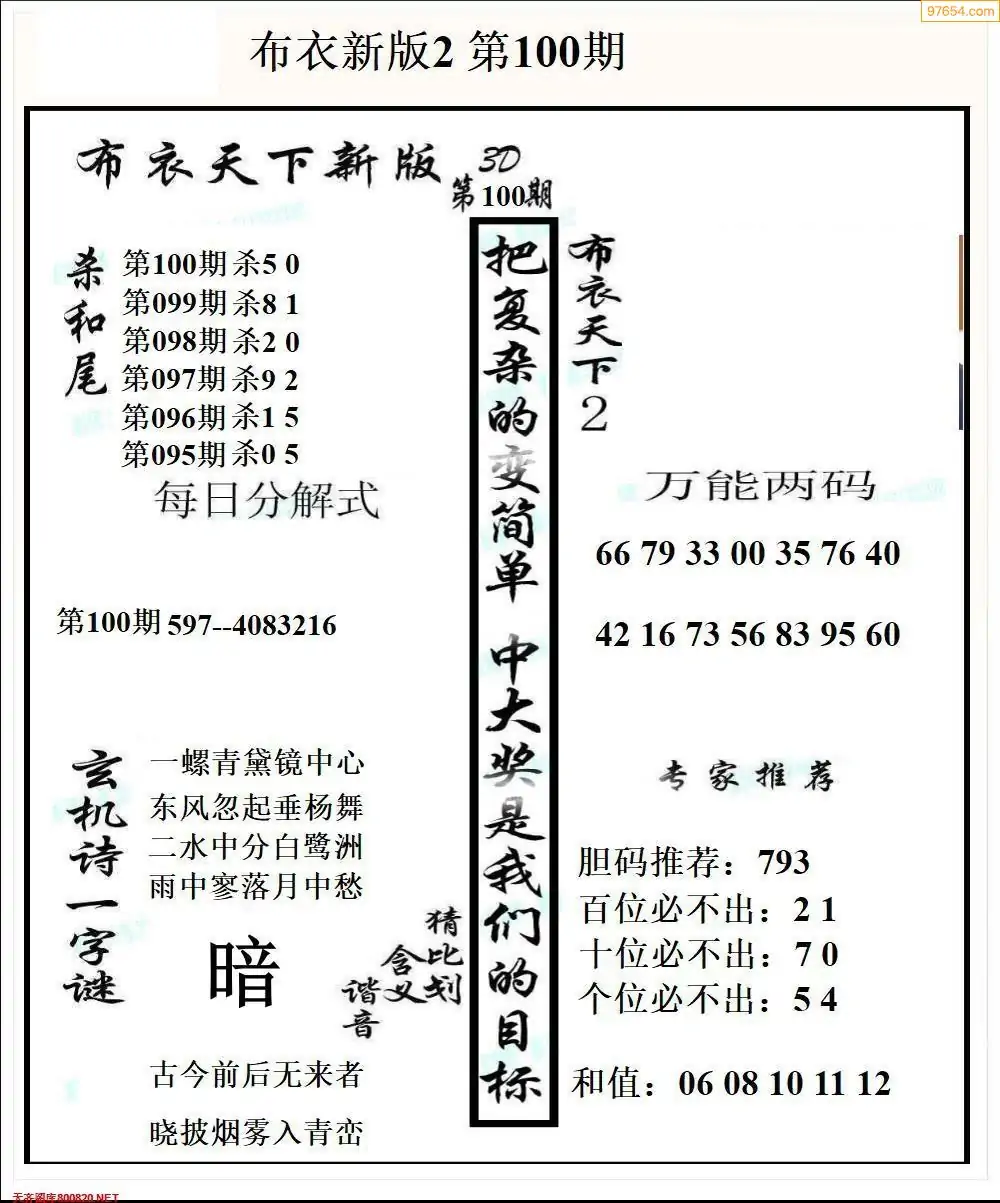 97654.com
布衣新版2 第100期
布衣天下新版 3D
第100期
杀和尾
第100期 杀5 0
第099期 杀8 1
第098期 杀2 0
第097期 杀9 2
第096期 杀1 5
第095期 杀0 5
每日分解式
第100期 597--4083216
玄机诗一字谜
一螺青黛镜中心
东风忽起垂杨舞
二水中分白鹭洲
雨中寥落月中愁
暗
猜比划
含义
谐音
古今前后无来者
晓披烟雾入青峦
把复杂的变简单 中大奖是我们的目标
布衣天下2
万能两码
66 79 33 00 35 76 40
42 16 73 56 83 95 60
专家推荐
胆码推荐：793
百位必不出：2 1
十位必不出：7 0
个位必不出：5 4
和值：06 08 10 11 12
800820.NET